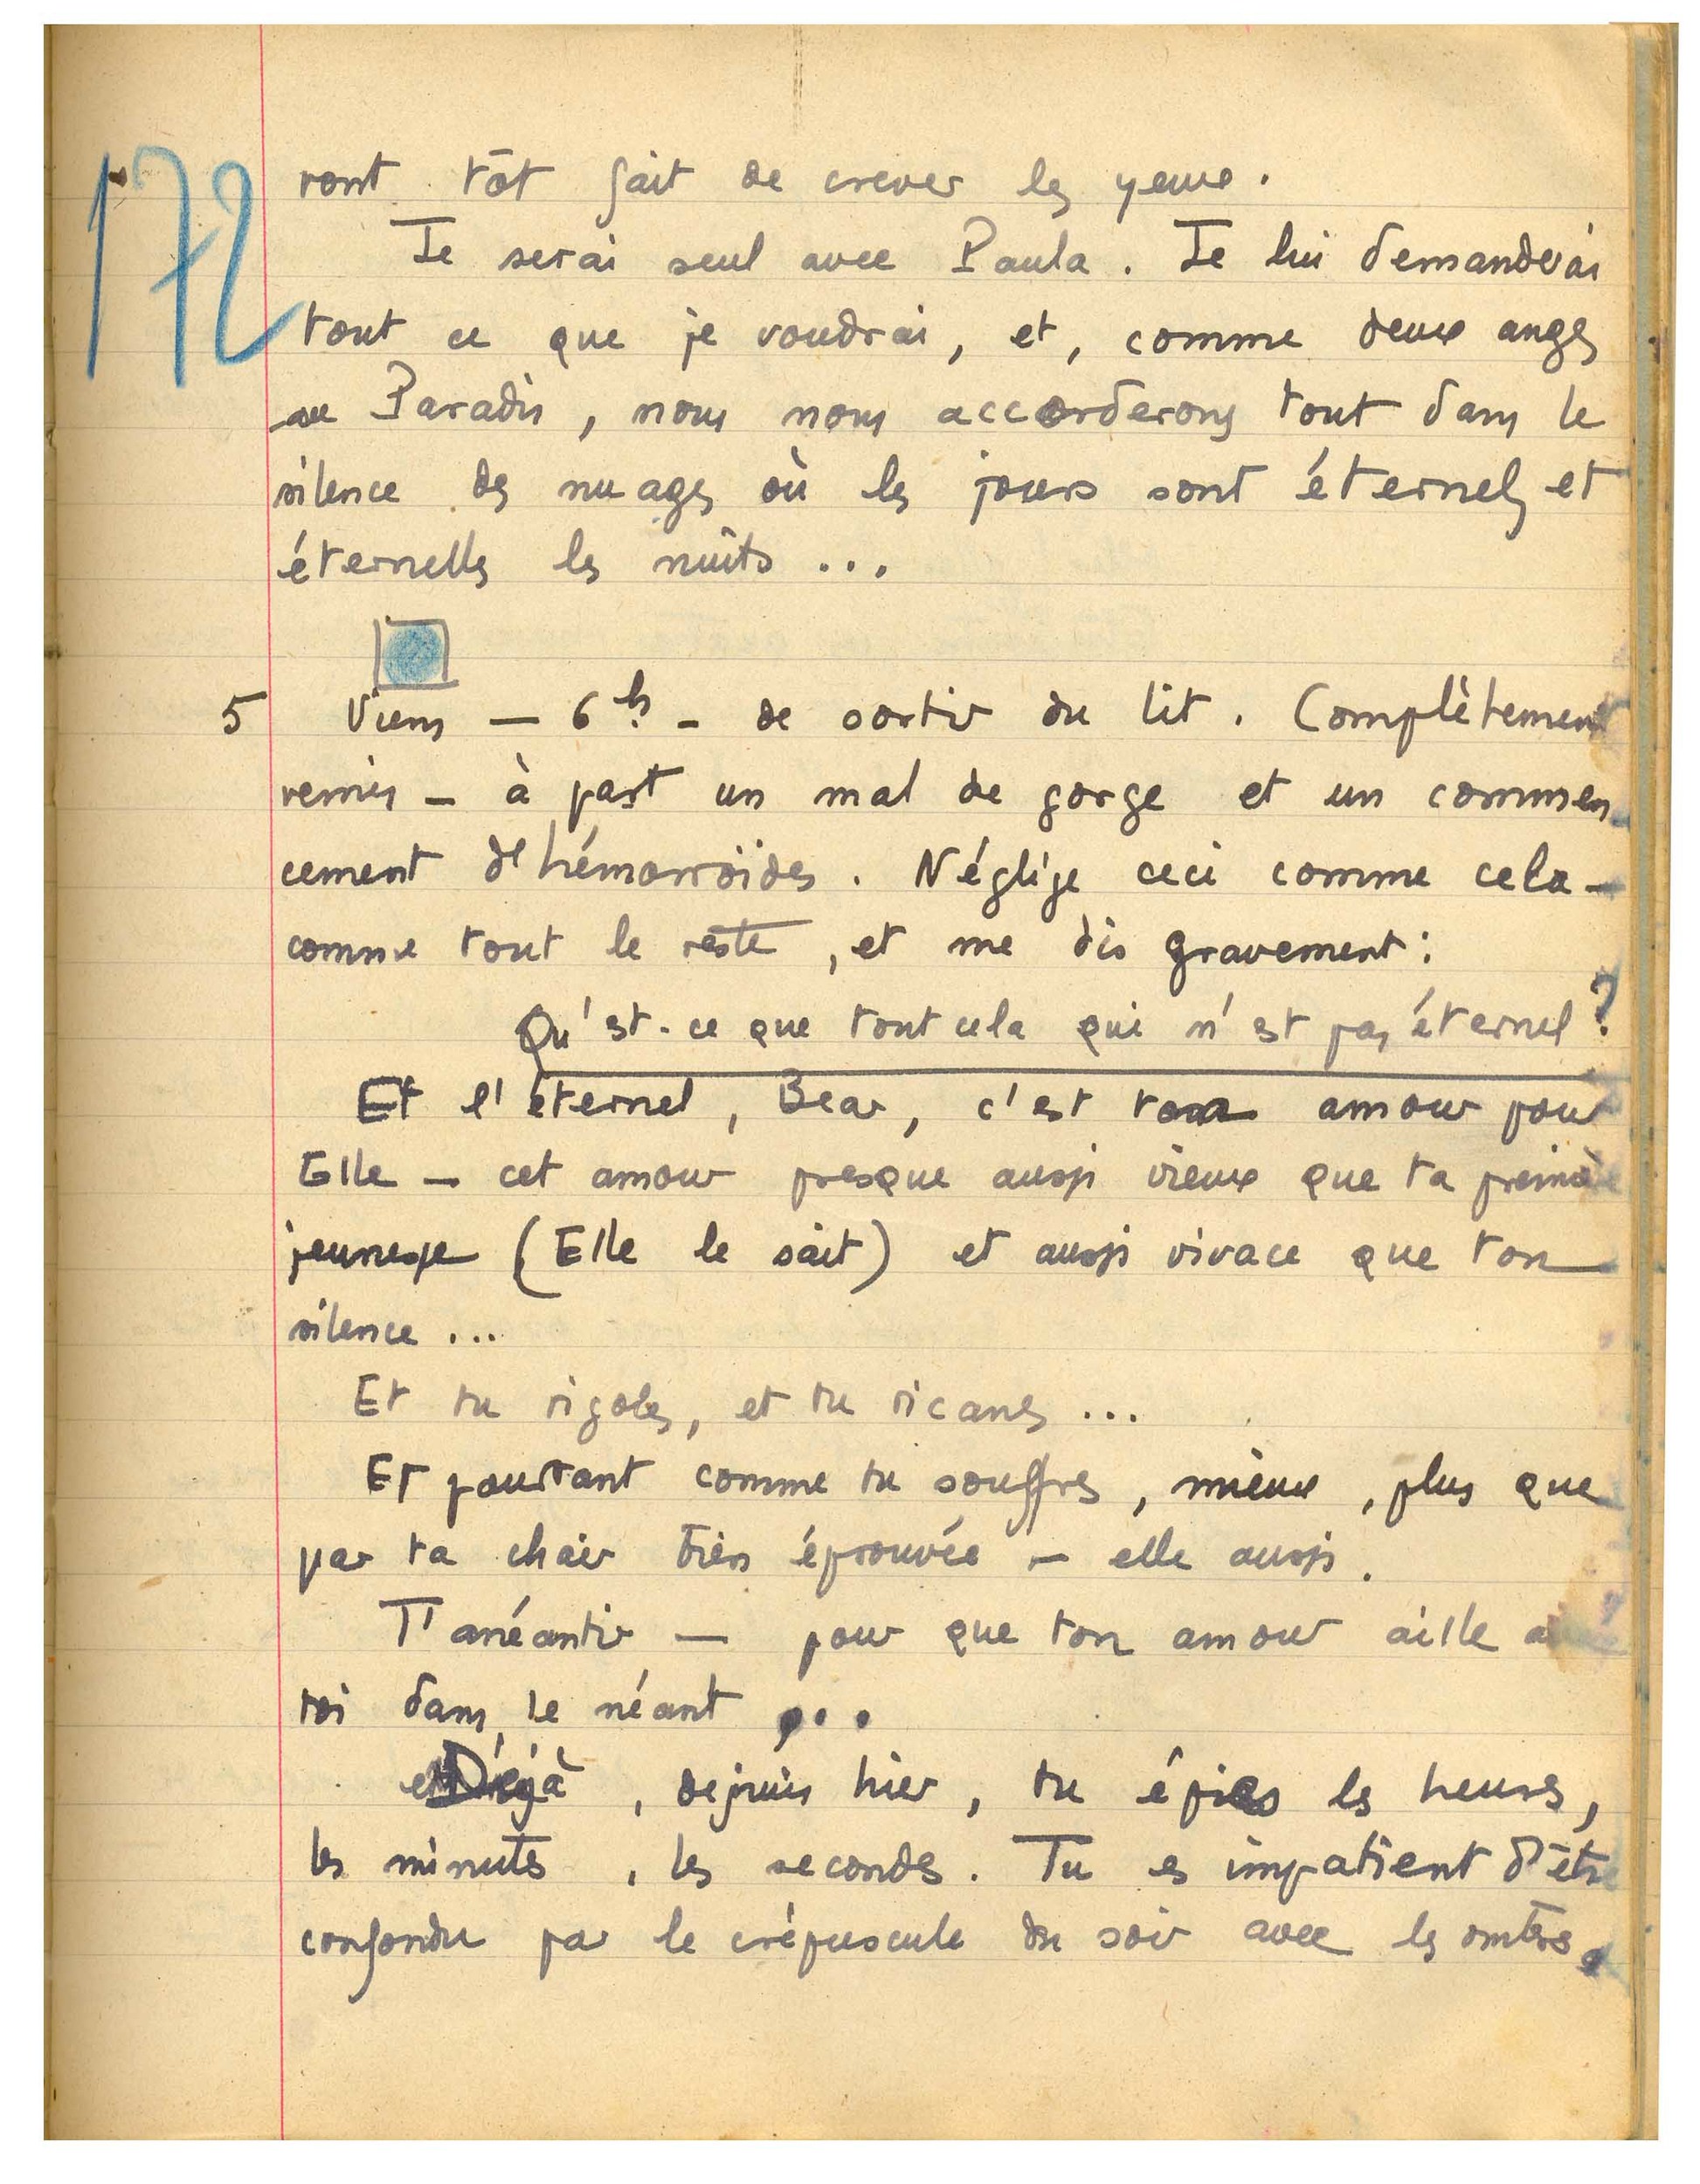 172
ront tôt fait de crever les yeux.
Je serai seul avec Paula. Je lui demanderai
tout ce que je voudrai, et, comme deux anges
au Paradis, nous nous accorderons tout dans le
silence des nuages où les jours sont éternels et
éternelles les nuits...
5 Viens — 6h. — de sortir du lit. Complètement
remis — à part un mal de gorge et un commen
cement d'hémorroïdes. Néglige ceci comme cela —
comme tout le reste, et me dis gravement :
Qu'est-ce que tout cela qui n'est pas éternel ?
Et l'éternel, Bear, c'est ton amour pour
Elle — cet amour presque aussi vieux que ta première
jeunesse (Elle le sait) et aussi vivace que ton
silence...
Et tu rigoles, et tu ricanes...
Et pourtant comme tu souffres, mieux, plus que
par ta chair bien éprouvée — elle aussi.
T'anéantir — pour que ton amour aille
toi dans le néant...
Déjà, depuis hier, tu épies les heures,
les minutes, les secondes. Tu es impatient d'être
confondu par le crépuscule du soir avec les ombres,